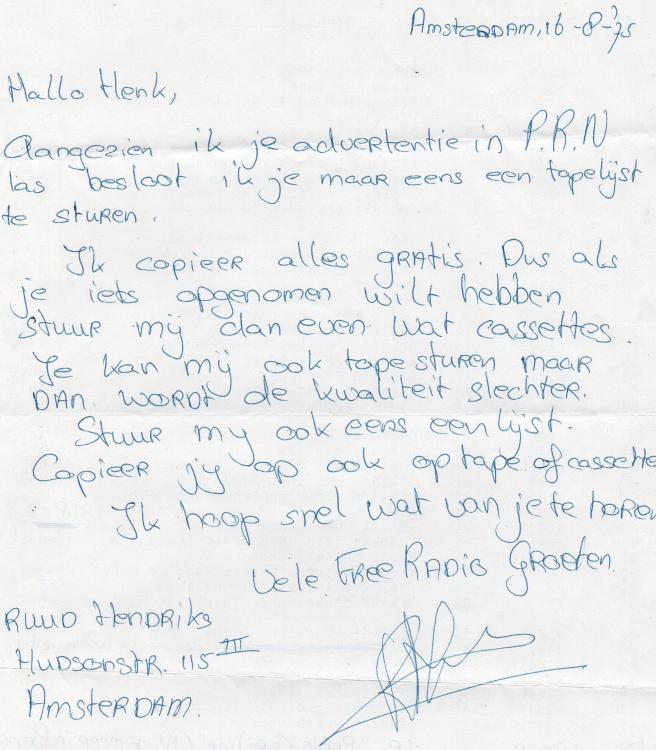 Amsterdam, 16-8-'75
Hallo Henk,
Aangezien ik je advertentie in P.R.N
las besloot ik je maar eens een tapelijst
te sturen.
Ik copieer alles gratis. Dus als
je iets opgenomen wilt hebben
stuur mij dan even wat cassettes.
Je kan mij ook tape sturen maar
DAN WORDT de kwaliteit slechter.
Stuur my ook eens een lijst.
Copieer jy op ook op tape of cassette
Ik hoop snel wat van je te horen
Vele Free Radio Groeten.
Ruud Hendriks
Hudsonstr. 115 III
Amsterdam.